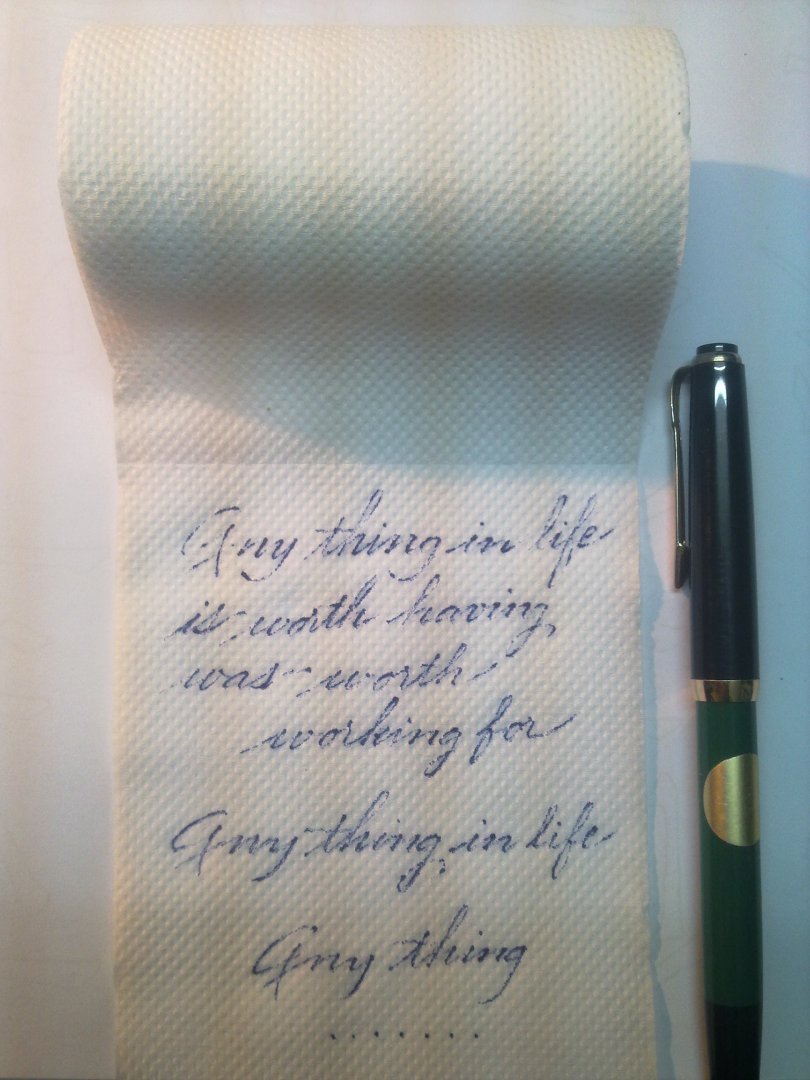 Any thing in life
is worth having
was worth
working for
Any thing in life
Any thing
.......